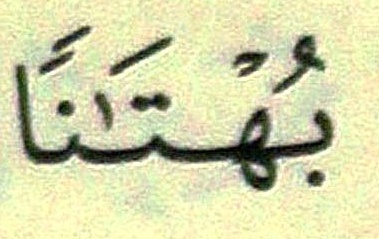 بُهْتَـٰنًا